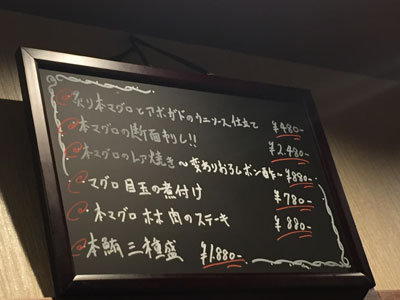 炙り本マグロとアボガドのウニソース仕立て ¥480-
本マグロの断面刺し!! ¥2.480-
本マグロのレア焼き〜変わりおろしポン酢〜 ¥880-
マグロ目玉の煮付け ¥780-
本マグロホホ肉のステーキ ¥880-
本鮪三種盛 ¥1.880-